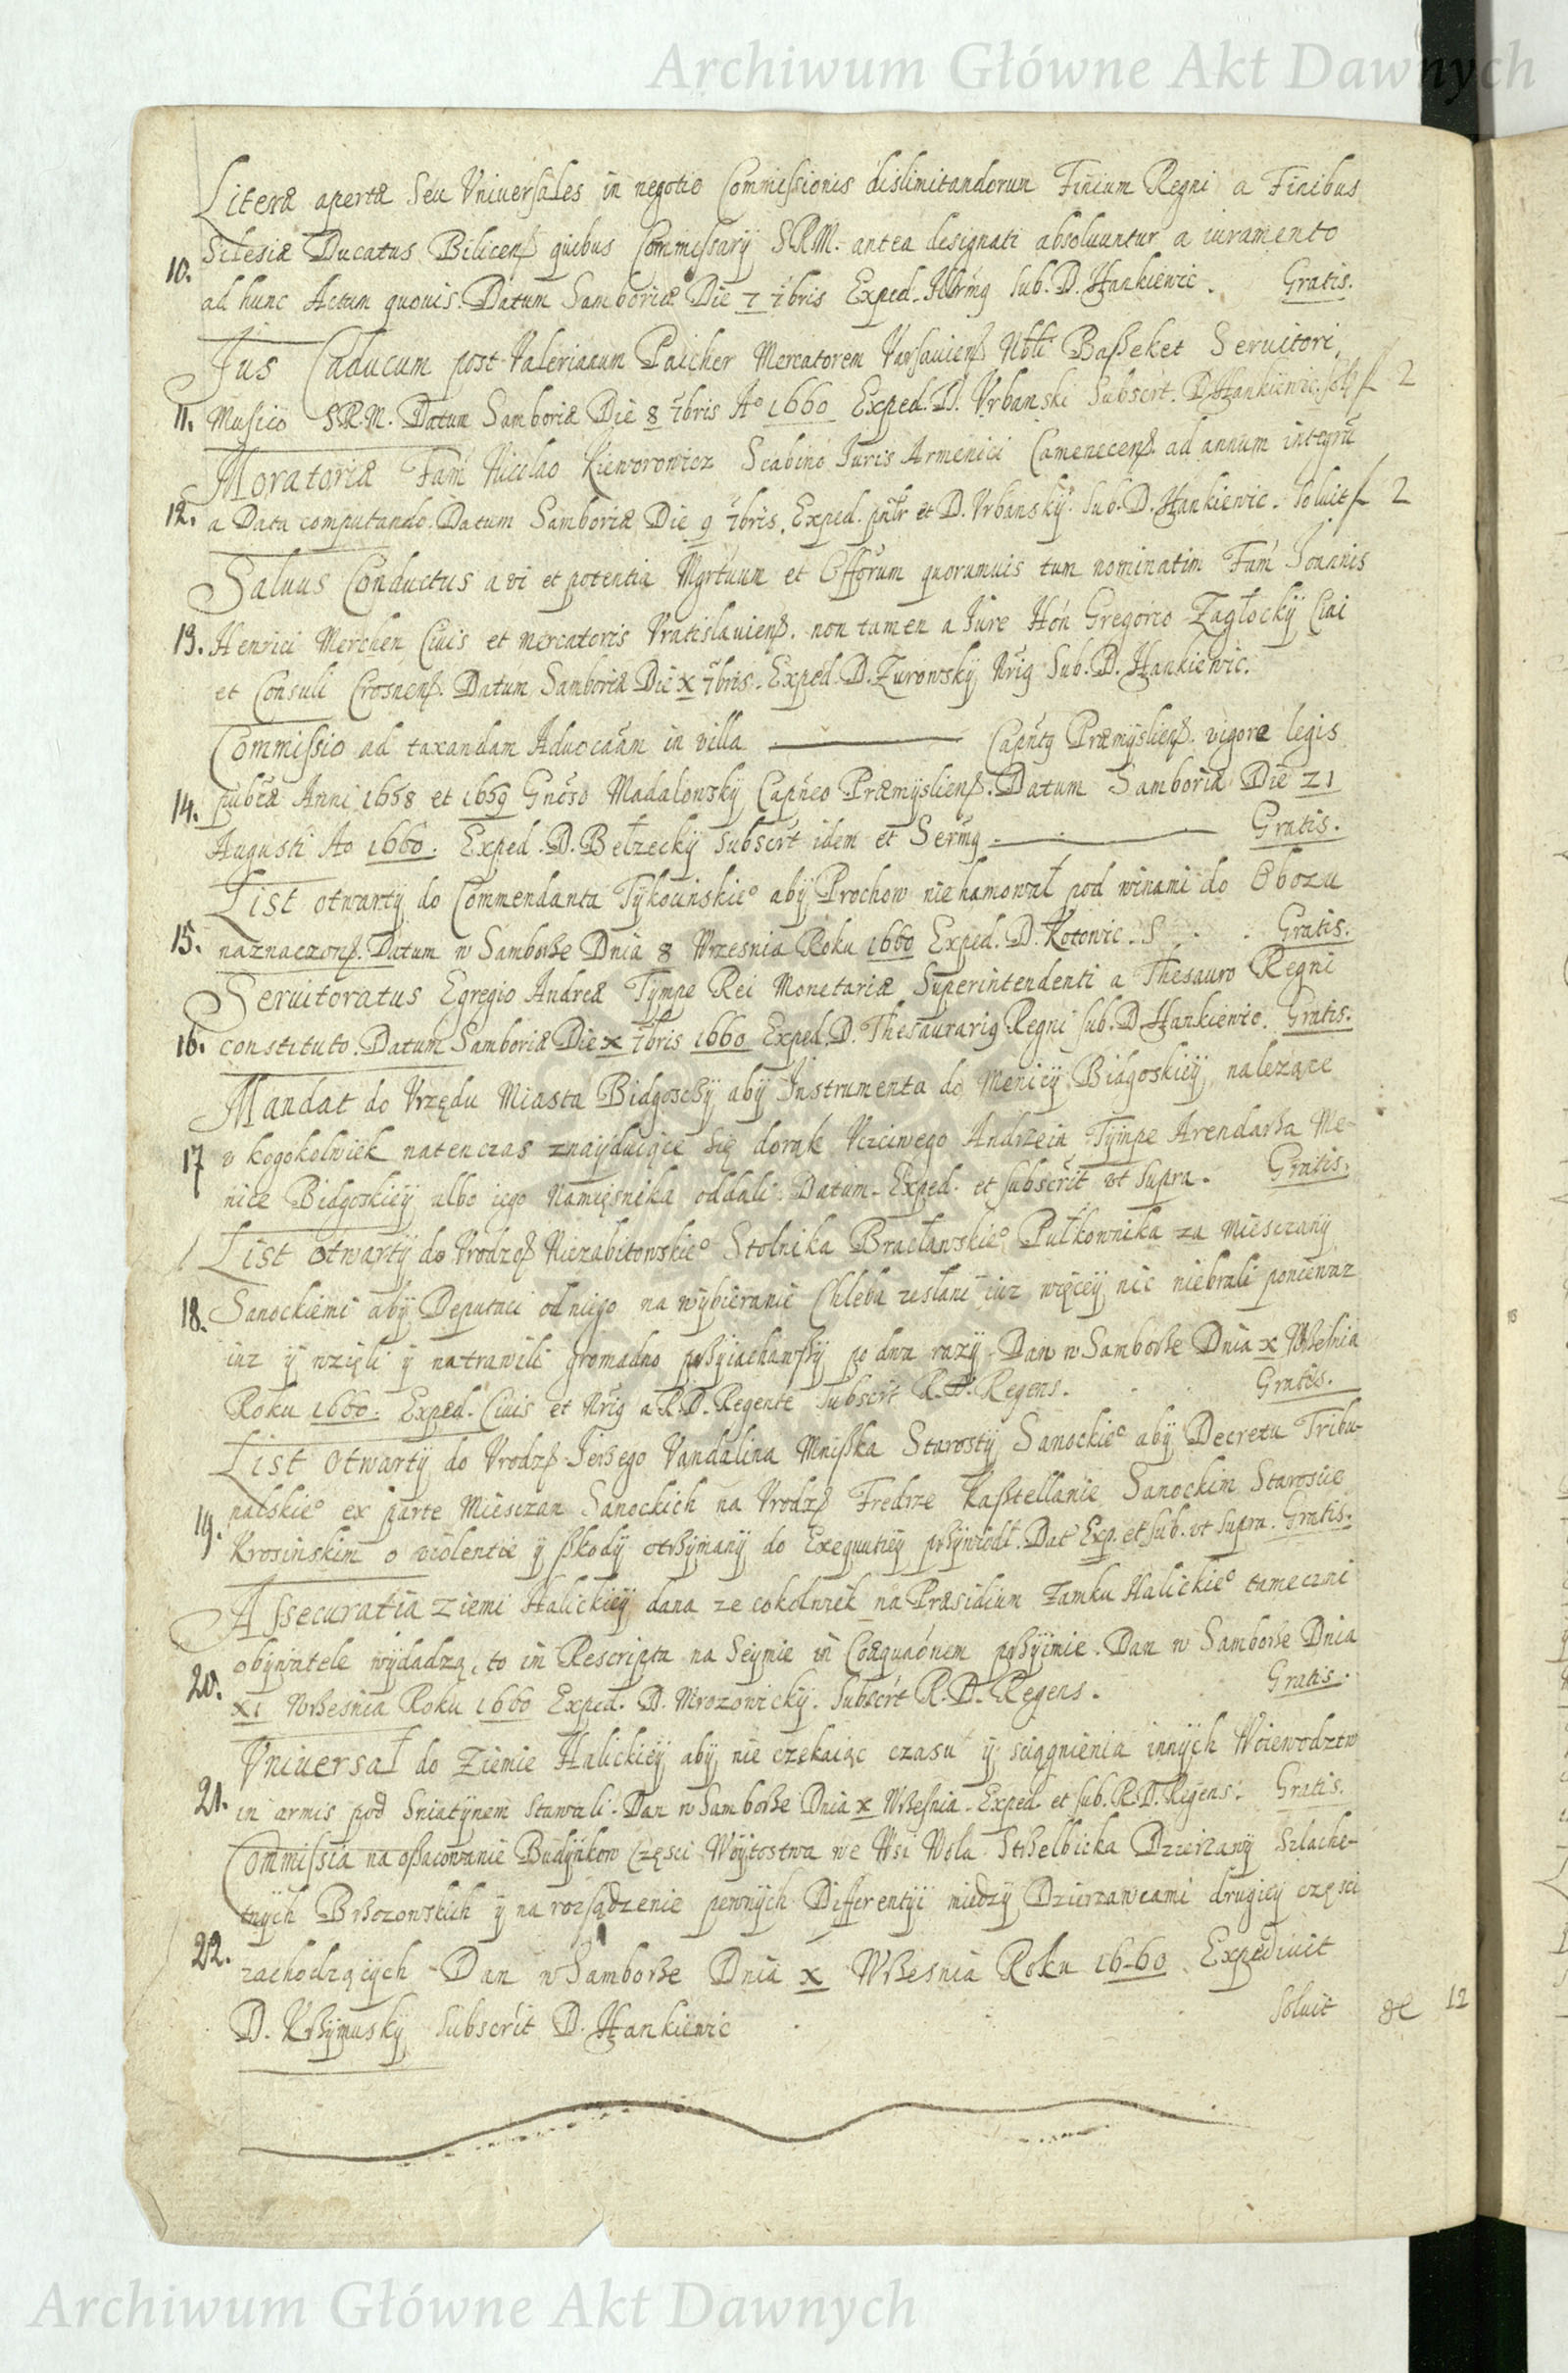 Archiwum Główne Akt Dawnych
Literæ apertæ Seu Vniuersales in negotio Commissionis dislimitandorum Finium Regni a Finibus
Silesiæ Ducatus Bilicenß quibus Commissarÿ S.R.M. antea designati absoluuntur a iuramento
10. ad hunc Actum quouis. Datum Samboriæ Die 7 7bris Exped. Sub. D. Hankiewic. Gratis.
Jus Caducum post Valerianum Paicher Mercatorem Varsauienß Nbli Baßeket Seruitori,
11. Musico S.R.M. Datum Samboriæ Die 8 7bris Ao 1660 Exped. D. Vrbanski Subscrt. D. Hankiewic. f 2
Moratoriæ Fam Nicolao Kieworowicz Scabino Juris Armenici Camenecenß. ad annum integrũ
12. a Data computando. Datum Samboriæ Die 9 7bris. Exped. pñtr et D. Vrbanskÿ. Sub. D. Hankiewic. Soluit f 2
Saluus Conductus a vi et potentia Mgrtuum et Offorum quorumuis tum nominatim Fam Joannis
13. Henrici Merchen Ciuis et mercatoris Vratislauienß. non tamen a Jure Hon Gregorio Zagłockÿ Ciui
et Consuli Crosnenß. Datum Samboriæ Die x 7bris. Exped. D. Zurowskÿ Nrig Sub. D. Hankiewic.
Commissio ad taxandam Aduocaam in villa Capñtg Præmÿslienß. vigore legis
14. publcæ Anni 1658 et 1659 Gnoso Madalonskÿ Capneo Præmÿslienß. Datum Samboriæ Die 21
Augusti Ao 1660. Exped. D. Bełzeckÿ Subscrt idem et Sermg Gratis.
List otwartÿ do Commendanta Tÿkocinskieo abÿ Prochow niehamował pod winami do Obozu
15. naznaczonß. Datum w Samborße Dnia 8 Wrzesnia Roku 1660 Exped. D. Kotowic. S Gratis.
Seruitoratus Egregio Andreæ Tÿmpe Rei Monetariæ Superintendenti a Thesauro Regni
16. constituto. Datum Samboriæ Die x 7bris 1660 Exped. D. Thesaurarig Regni sub. D. Hankiewic. Gratis.
Mandat do Vrzędu Miasta Bidgosßÿ abÿ Instrumenta do Menicÿ Bidgoskieÿ nalezące
17 v kogokolwiek natenczas znaÿduiące się dorąk Vczciwego Andrzeia Tÿmpe Arendarßa Me-
nice Bidgoskieÿ albo iego Namięsnika oddali. Datum. Exped. et subscrit vt supra. Gratis.
List otwartÿ do Vrodzoß Niezabitowskieo Stolnika Bracławskieo Pułkownika za Miesczanÿ
18. Sanockiemi abÿ Deputaci odniego na wÿbieranie Chleba zesłani iuz więceÿ nic niebrali poniewaz
iuz ÿ wzięli ÿ natrawili gromadno prßÿiachawßÿ po dwa razÿ. Dan w Samborße Dnia x Wrßesnia
Roku 1660. Exped. Ciuis et Nrig a R.D. Regente Subscrt R.D. Regens. Gratis.
List otwartÿ do Vrodzß Jerßego Vandalina Mnißka Starostÿ Sanockieo abÿ Decretu Tribu-
19. nalskieo ex parte Miesczan Sanockich na Vrodzß Fredrze Kaßtellanie Sanockim Starosiie
Krosinskim o violentie ÿ ßkodÿ otrßÿmanÿ do Exequutieÿ prßÿwiodł. Dat Exp. et sub. vt supra. Gratis.
Assecuratia Ziemi Halickieÿ dana ze cokolwiek na Præsidium Zamku Halickieo tameczni
20. obÿwatele wÿdadzą, to in Rescripta na Seÿmie in Coæquaónem prßÿimie. Dan w Samborße Dnia
XI Wrßesnia Roku 1660 Exped. D. Mrozowickÿ. Subscrt R.D. Regens. Gratis.
Vniuersał do Ziemie Halickieÿ abÿ nie czekaiąc czasu ÿ sciągnienia innÿch Woiewodztw
21. in armis pod Sniatÿnem stawali. Dan w Samborße Dnia x Wrßesnia. Exped. et sub. R.D. Regens. Gratis.
Commissia na oßacowanie Budÿnkow Części Woÿtostwa we Wsi Wola Strßelbicka Dzierzanÿ Szlache-
tnÿch Brßozowskich ÿ na rozsądzenie pewnÿch Differentÿi miedzÿ Dzierzawcami drugieÿ części
22. zachodzącÿch. Dan w Samborße Dnia x Wrßesnia Roku 1660. Expediuit
D. Krßÿmuskÿ Subscrit D. Hankiewic Soluit 12
Archiwum Główne Akt Dawnych